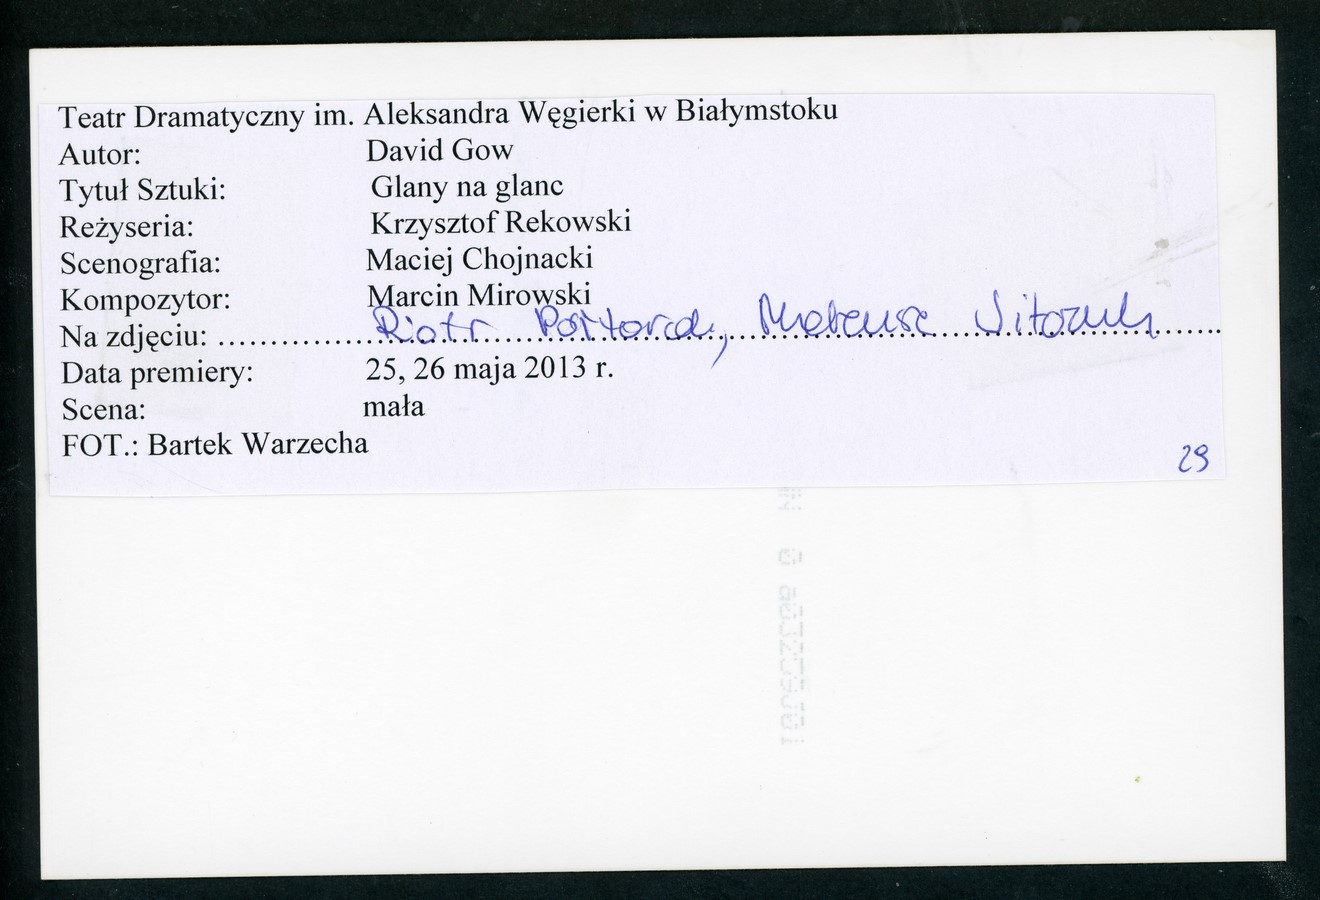 Teatr Dramatyczny im. Aleksandra Węgierki w Białymstoku
Autor: David Gow
Tytuł Sztuki: Glany na glanc
Reżyseria: Krzysztof Rekowski
Scenografia: Maciej Chojnacki
Kompozytor: Marcin Mirowski
Na zdjęciu: Piotr Półtorak, Mateusz Witczuk
Data premiery: 25, 26 maja 2013 r.
Scena: mała
FOT.: Bartek Warzecha
29